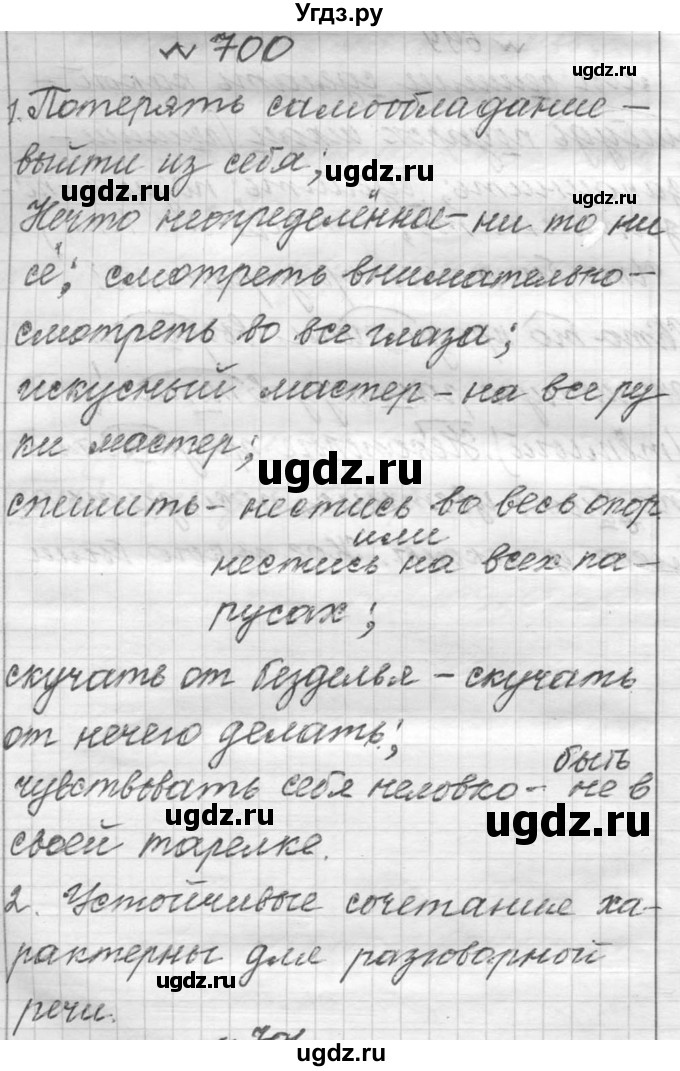 Угдз.ру
№ 700
ugdz.ru
1. Потерять самообладание –
выйти из себя;
ugdz.ru
ugdz.ru
Нечто неопределённое – ни то ни
сё; смотреть внимательно –
смотреть во все глаза;
искусный мастер – на все ру
ки мастер;
ugdz.ru
спешить – нестись во весь опор
или
нестись на всех па-
русах;
скучать от безделья – скучать
от нечего делать;
быть
чувствовать себя неловко – не в
ugdz.ru
ugdz.ru
своей тарелке.
2. Устойчивые сочетания ха-
рактерны для разговорной
ugdz.ru
речи.
ugdz.ru